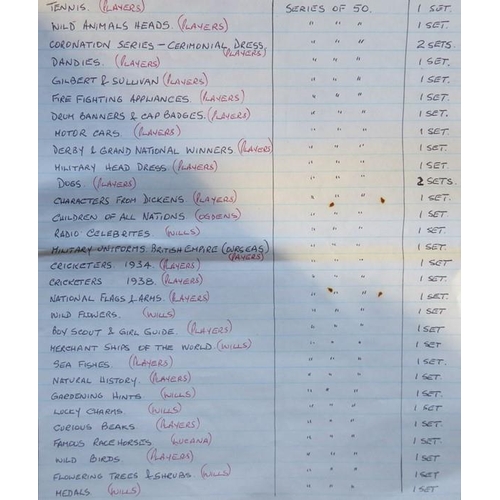 TENNIS. (PLAYERS) SERIES OF 50. 1 SET.
WILD ANIMALS HEADS. (PLAYERS) " " " 1 SET.
CORONATION SERIES - CERIMONIAL DRESS, (PLAYERS) " " " 2 SETS.
DANDIES. (PLAYERS) " " " 1 SET.
GILBERT & SULLIVAN (PLAYERS) " " " 1 SET.
FIRE FIGHTING APPLIANCES. (PLAYERS) " " " 1 SET.
DRUM BANNERS & CAP BADGES. (PLAYERS) " " " 1 SET.
MOTOR CARS. (PLAYERS) " " " 1 SET.
DERBY & GRAND NATIONAL WINNERS. (PLAYERS) " " " 1 SET.
MILITARY HEAD DRESS (PLAYERS) " " " 1 SET.
DOGS. (PLAYERS) " " " 2 SETS.
CHARACTERS FROM DICKENS (PLAYERS) " " " 1 SET.
CHILDREN OF ALL NATIONS. (OGDENS) " " " 1 SET.
RADIO CELEBRITES. (WILLS) " " " 1 SET.
MILITARY UNIFORMS. BRITISH EMPIRE (OVRSEAS) (PLAYERS) " " " 1 SET.
CRICKETERS. 1934. (PLAYERS) " " " 1 SET
CRICKETERS 1938. (PLAYERS) " " " 1 SET.
NATIONAL FLAGS & ARMS. (PLAYERS) " " " 1 SET.
WILD FLOWERS. (WILLS) " " " 1 SET
BOY SCOUT & GIRL GUIDE. (PLAYERS) " " " 1 SET
MERCHANT SHIPS OF THE WORLD. (WILLS) " " " 1 SET
SEA FISHES. (PLAYERS) " " " 1 SET.
NATURAL HISTORY. (PLAYERS) " " " 1 SET.
GARDENING HINTS (WILLS) " " " 1 SET.
LUCKY CHARMS. (WILLS) " " " 1 SET
CURIOUS BEAKS (PLAYERS) " " " 1 SET.
FAMOUS RACE HORSES (LUCANA) " " " 1 SET.
WILD BIRDS. (PLAYERS) " " " 1 SET.
FLOWERING TREES & SHRUBS. (WILLS) " " " 1 SET
MEDALS (WILLS) " " " 1 SET